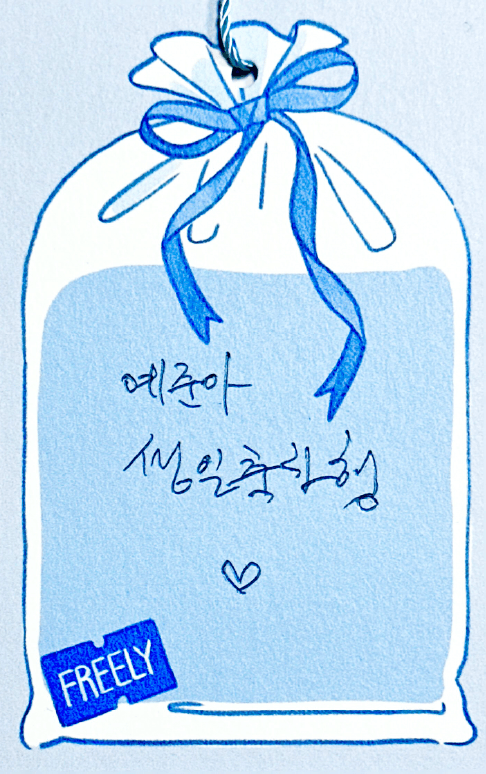 예준아
생일축하헝
♡
FREELY